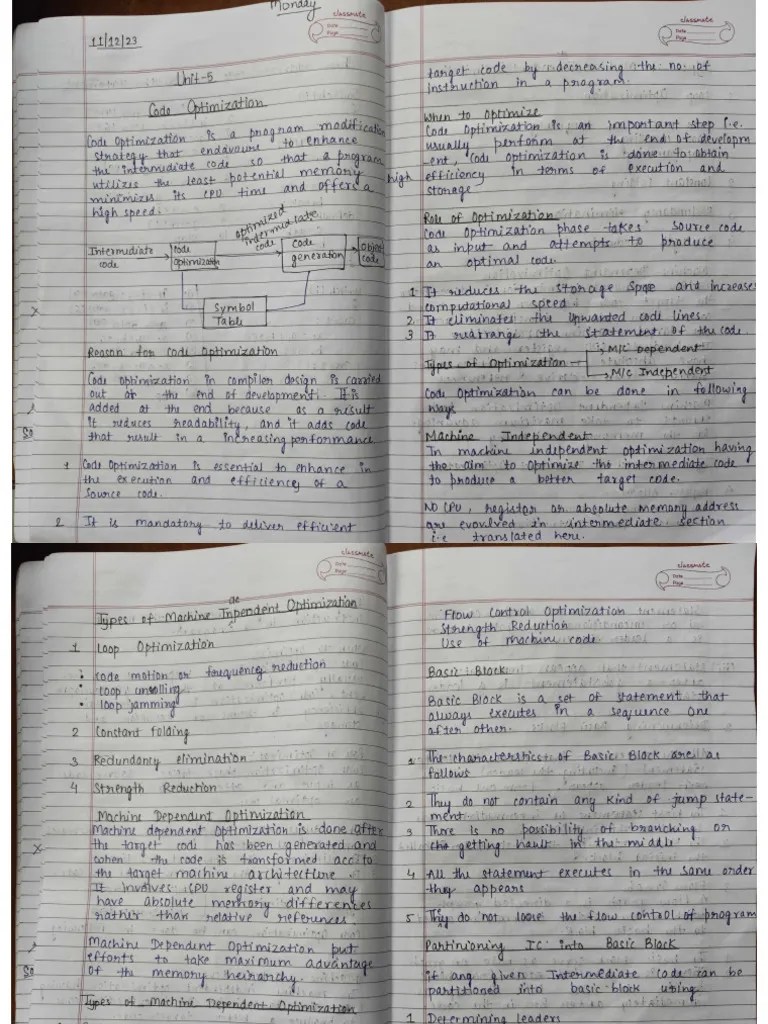 Monday
classmate
Date
Page
11/12/23
Unit-5
Code Optimization
Code Optimization is a program modification
strategy that endavoure to enhance
the intermediate code so that a program
utilizes the least potential memory
minimizes its CPU time and offers a
high speed.
Intermediate code
Code Optimization
optimized intermidiate code
Code generation
Object code
Symbol Table
Reason for Code Optimization
Code optimization in compiler design is carried
out at the end of development. It is
added at the end because as a result
it reduces readability, and it adds code
that result in a increasing performance.
1 Code Optimization is essential to enhance in
the execution and efficiency of a
source code.
2. It is mandatory to deliver efficient
classmate
Date
Page
target code by decreasing the no. of
instruction in a program.
When to Optimize
Code Optimization is an important step i.e.
usually perform at the end of developm
ent, Code optimization is done to obtain
high efficiency in terms of execution and
storage
Role of Optimization
Code Optimization phase takes source code
as input and attempts to produce
an optimal code.
1 It reduces the storage space and increases
computational speed
2. It eliminates the upwarded code lines.
3 It rearrange the statement of the code.
Types of Optimization
M/C Dependent
M/C Independent
Code Optimization can be done in following
ways
Machine Independent
In machine independent optimization having
the aim to optimize the intermediate code
to produce a better target code.
NO CPU, register or absolute memory address
are evovlved in intermediate section
i.e translated here.
classmate
Date
Page
Types of Machine Inpendent Optimization
de
1 Loop Optimization
code motion or frequency reduction
Loop unrolling
loop jamming
2 Constant Folding
3 Redundancy elimination
4 Strength Reduction
Machine Dependent Optimization
Machine dependent optimization is done after
the target code has been generated and
when the code is transformed acc to
the target machine architecture.
It involves CPU register and may
have absolute memory differences
rather than relative references.
Machine Dependent Optimization put
efforts to take maximum advantage
of the memory heirarchy.
Types of Machine Dependent Optimization
classmate
Date
Page
Flow Control Optimization
Strength Reduction
Use of machine code
Basic Block
Basic Block is a set of statement that
always executes in a sequence one
after other.
1 The characterstics of Basic Block are as
follows
2 They do not contain any kind of jump state-
ment.
3 There is no possibility of branching or
getting hault in the middle.
4 All the statement executes in the same order
they appears
5 They do not loose the flow control of program
Partinioning IC into Basic Block
if any given Intermediate code can be
partitioned into basic block using
1 Determining leaders